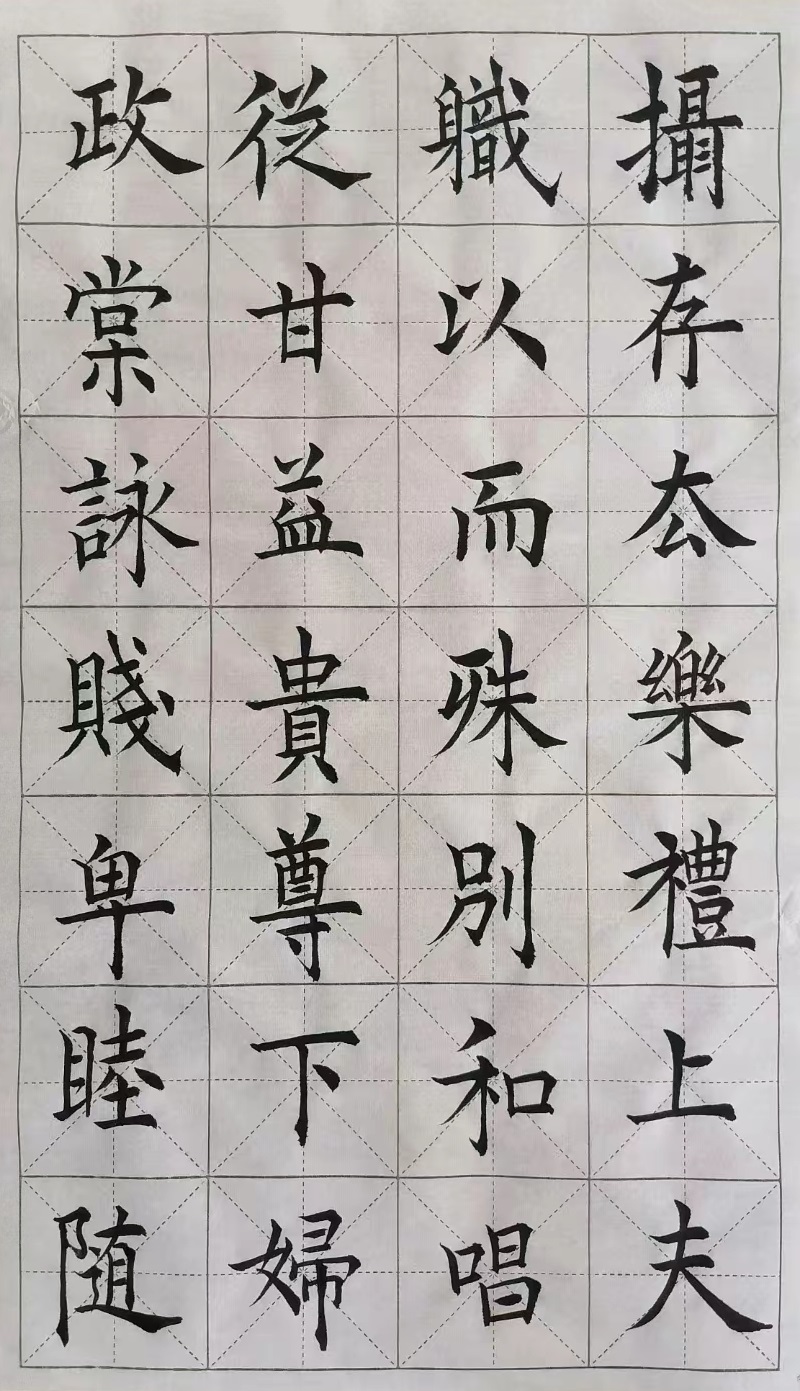 攝軄従政
存以甘棠
厺而益詠
樂殊貴賤
禮別尊卑
上和下睦
夫唱婦随